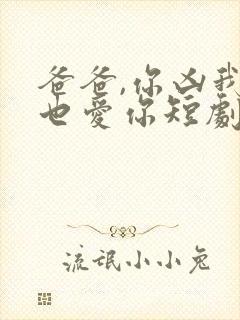 爸爸,你凶我
也爱你短劇
流氓小小兔